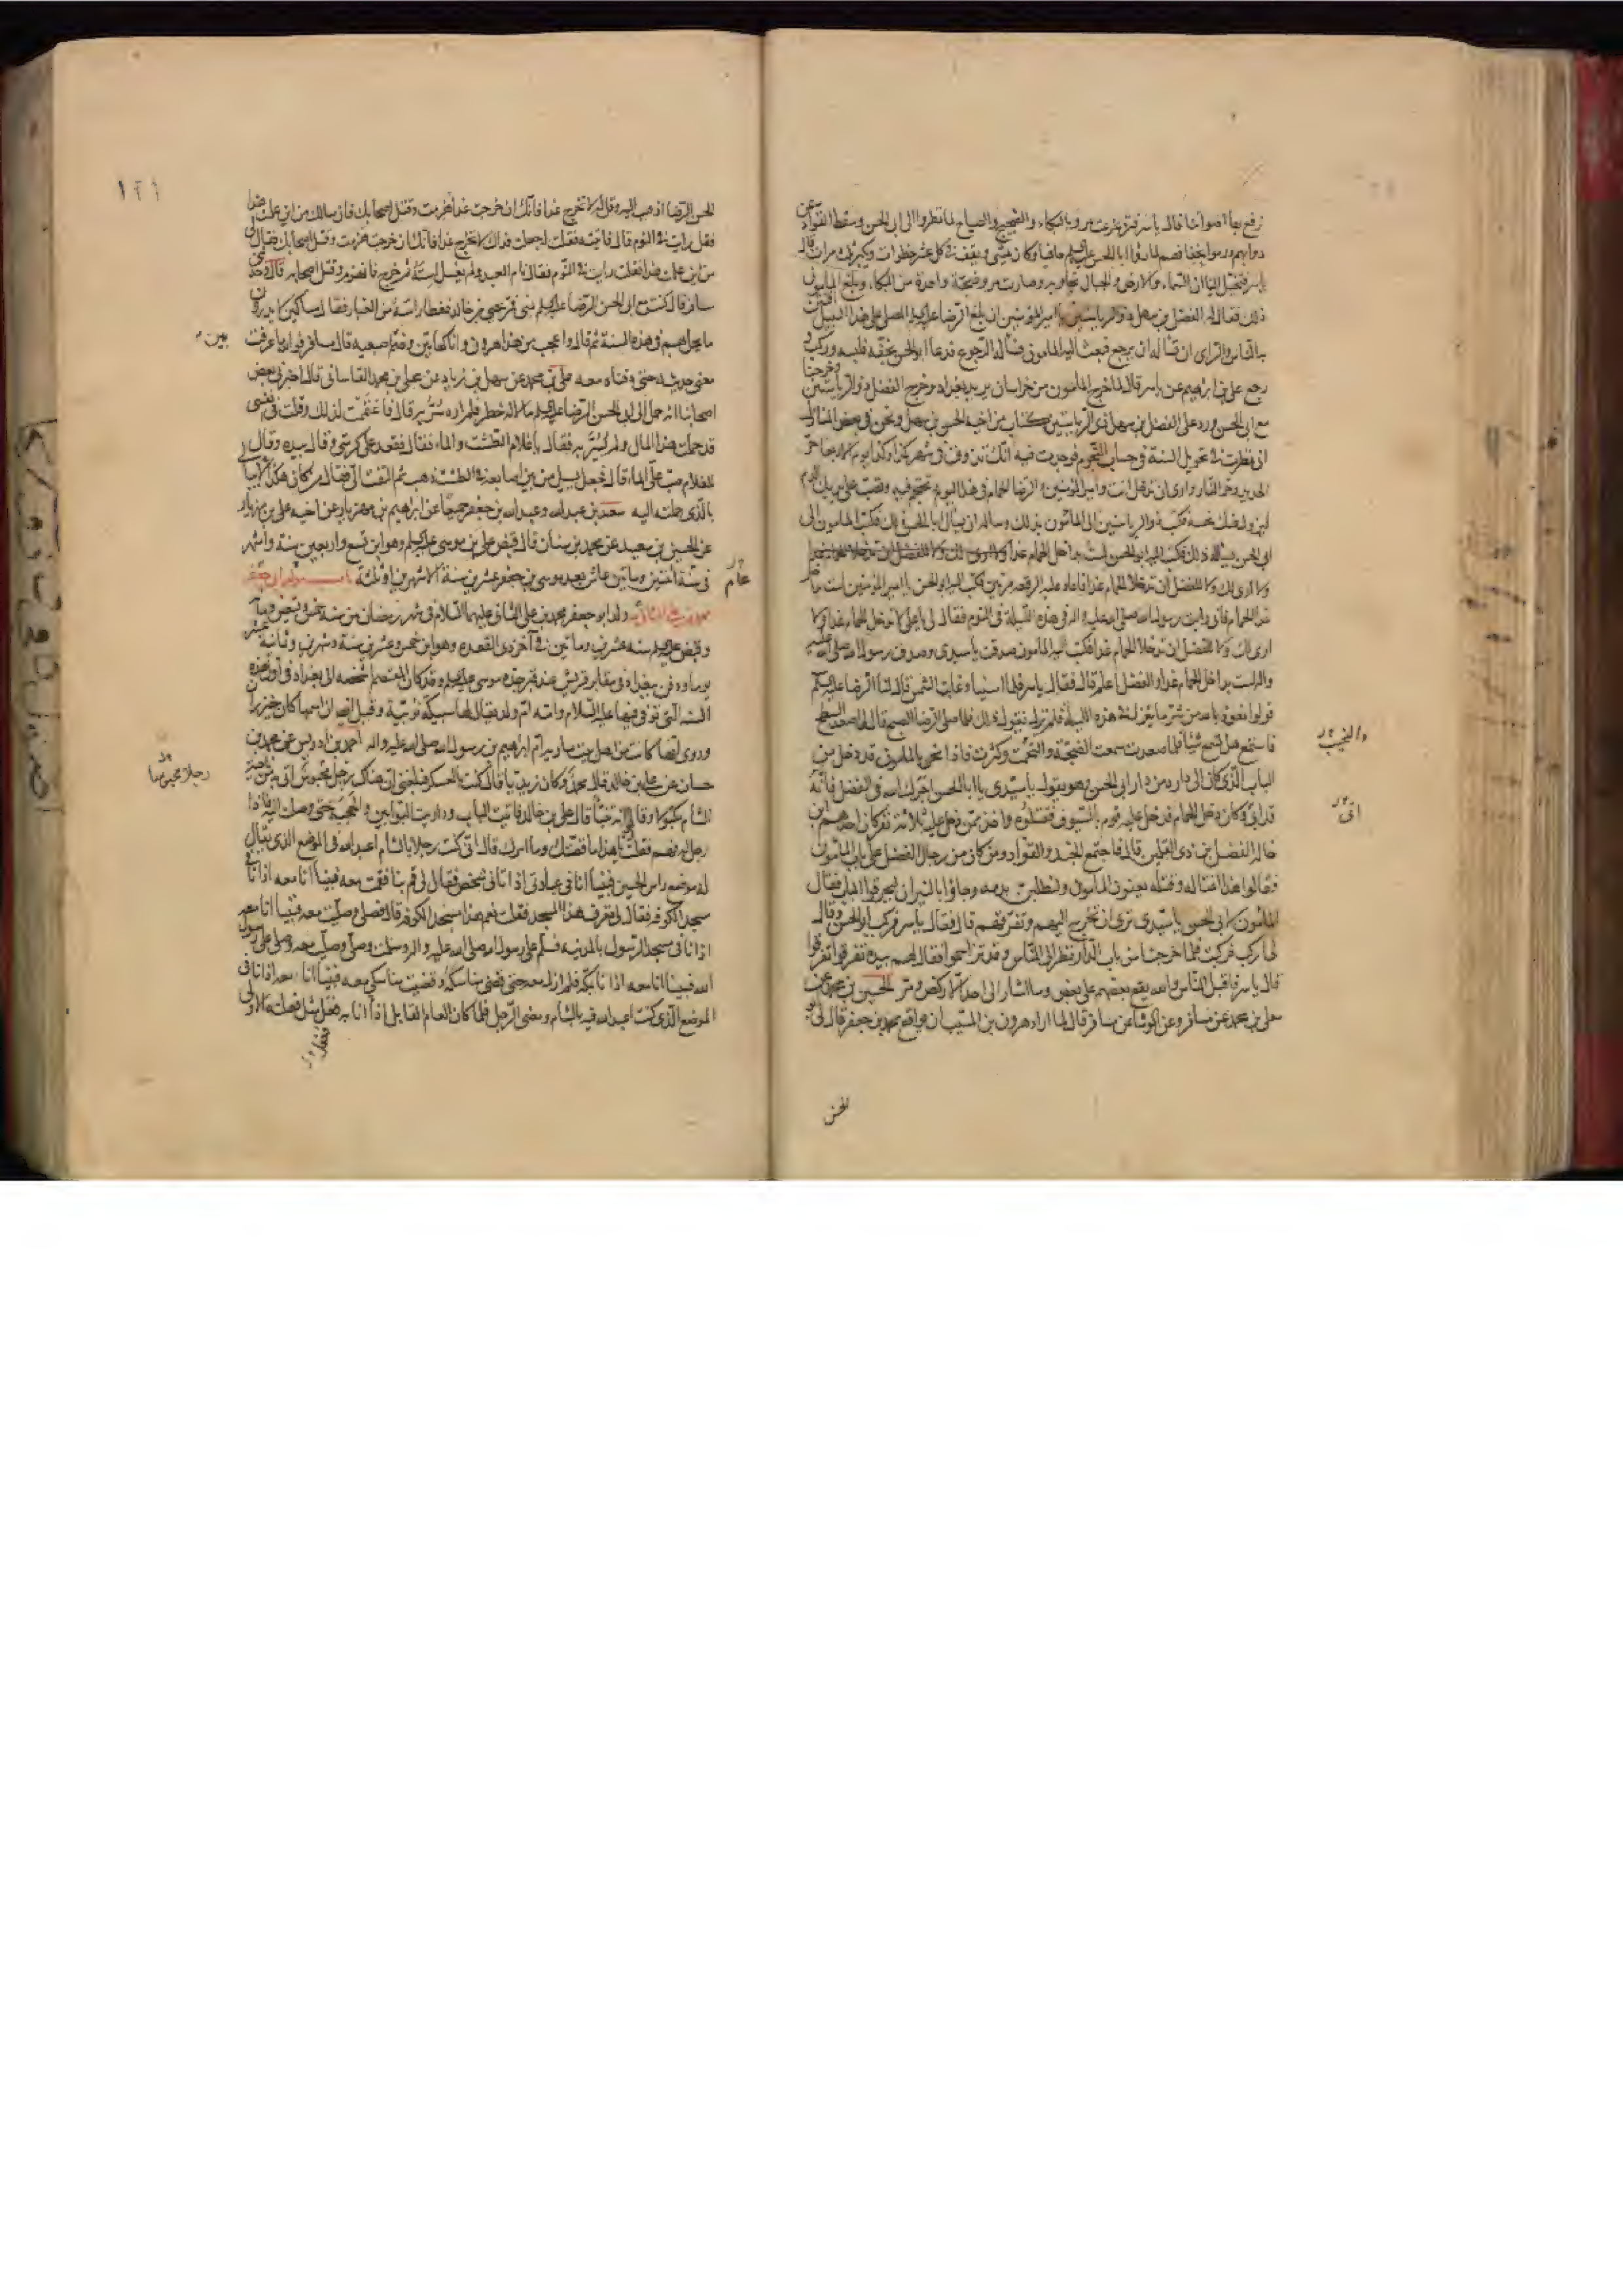 نرفع بها اصواتنا قال ياسر فتزعزعت مرو بالبكاء والضجيج والصياح لما نظروا الى ابى الحسن وسقط القواد عن
دوابهم ورموا بخفافهم لما راوا ابا الحسن عليه السلم حافيا وكان يمشى ويقف فى كل عشر خطوات ويكبر ثلث مرات قال
ياسر فتخيل الينا ان السماء والارض والجبال تجاوبه وصارت مرو ضجة واحدة من البكاء وبلغ المامون
ذلك فقال له الفضل بن سهل ذو الرياستين يا امير المؤمنين ان بلغ الرضا عليه السلم المصلى على هذا السبيل افتتن
به الناس والراى ان تساله ان يرجع فبعث اليه المامون فساله الرجوع فدعا ابو الحسن بخفه فلبسه وركب و
رجع على بن ابراهيم عن ياسر قال لما خرج المامون من خراسان يريد بغداد وخرج الفضل ذو الرياستين وخرجنا
مع ابى الحسن ورد على الفضل بن سهل ذى الرياستين كتاب من اخيه الحسن بن سهل ونحن فى بعض المنازل
انى نظرت فى تحويل السنة فى حساب النجوم فوجدت فيه انك تذوق فى شهر كذا وكذا يوم الاربعا حر
الحديد وحر النار وارى ان تدخل انت وامير المؤمنين والرضا الحمام فى هذا اليوم وتحتجم فيه وتصب على يديك الدم
ليزول عنك نحسه فكتب ذو الرياستين الى المامون بذلك وساله ان يسال ابا الحسن ذلك فكتب المامون الى
ابى الحسن يساله ذلك فكتب اليه ابو الحسن لست بداخل الحمام غدا
ولا ارى لك ولا للفضل ان تدخلا الحمام غدا فاعاد عليه الرقعه مرتين فكتب اليه ابو الحسن يا امير المؤمنين لست بداخل
غدا الحمام فانى رايت رسول الله صلى الله عليه واله فى هذه الليلة فى النوم فقال لى يا على لا تدخل الحمام غدا ولا
ارى لك ولا للفضل ان تدخلا الحمام غدا فكتب اليه المامون صدقت يا سيدى وصدق رسول الله صلى الله عليه
واله لست بداخل الحمام غدا والفضل اعلم قال فقال ياسر فلما امسينا وغابت الشمس قال لنا الرضا عليه السلم
قولوا نعوذ بالله من شر ما ينزل فى هذه الليلة فلم نزل نقول ذلك فلما صلى الرضا الصبح قال لى اصعد السطح
فاستمع هل تسمع شيئا فلما صعدت سمعت الضجة والتحمت وكثرت فاذا نحن بالمامون قد دخل من
الباب الذى كان الى داره من دار ابى الحسن وهو يقول يا سيدى يا ابا الحسن اجرك الله فى الفضل فانه
قد ابى وكان دخل الحمام فدخل عليه قوم بالسيوف فقتلوه واخذ ممن دخل عليه ثلاثة نفر كان احدهم ابن
خاله الفضل بن ذى القلمين قال فاجتمع الجند والقواد ومن كان من رجال الفضل على باب المامون
فقالوا هذا اغتاله وقتله يعنون المامون ولنطلبن بدمه وجاؤا بالنيران ليحرقوا الباب فقال
المامون لابى الحسن يا سيدى ترى ان تخرج اليهم وتفرقهم قال فقال ياسر فركب ابو الحسن وقال
لى اركب فركبت فلما خرجنا من باب الدار نظر الى الناس وقد تزاحموا فقال لهم بيده تفرقوا تفرقوا
قال ياسر فاقبل الناس والله يقع بعضهم على بعض وما اشار الى احد الا ركض ومر الحسين بن محمد عن
معلى بن محمد عن مسافر وعن الوشاء عن مسافر قال لما اراد هرون بن المسيب ان يواقع محمد بن جعفر قال لى ابو
الحسن
١٢٦
الحسن الرضا اذهب اليه وقل له لا تخرج غدا فانك ان خرجت غدا هزمت وقتل اصحابك فان سالك من اين علمت هذا
فقل رايت فى النوم قال فاتيته فقلت له جعلت فداك لا تخرج غدا فانك ان خرجت هزمت وقتل اصحابك فقال لى
من اين علمت هذا فقلت رايت فى النوم فقال نام العبد ولم يغسل استه ثم خرج فانهزم وقتل اصحابه قال وحدثنى
مسافر قال كنت مع ابى الحسن الرضا عليه السلم بمنى فمر يحيى بن خالد فغطا راسه من الغبار فقال مساكين لا يدرون
ما يحل بهم فى هذه السنة ثم قال واعجب من هذا هرون وانا كهاتين وضم اصبعيه قال مسافر فوالله ما عرفت
معنى حديثه حتى دفناه معه على بن محمد عن سهل بن زياد عن على بن محمد القاسانى قال اخبرنى بعض
اصحابنا انه حمل الى ابى الحسن الرضا عليه السلم مالا له خطر فلم اره سر به قال فاغتممت لذلك وقلت فى نفسى
قد حملت هذا المال ولم يسر به فقال يا غلام الطشت والماء فقعد على كرسى وقال بيده وقال
للغلام صب على الماء قال فجعل يسيل من بين اصابعه فى الطشت ذهب ثم التفت الى فقال من كان هكذا لا يبالى
بالذى حملته اليه سعد بن عبد الله وعبد الله بن جعفر جميعا عن ابراهيم بن مهزيار عن اخيه على بن مهزيار
عن الحسين بن سعيد عن محمد بن سنان قال قبض على بن موسى عليه السلم وهو ابن تسع واربعين سنة واشهر
فى سنة اثنين وماتين عاش بعد موسى بن جعفر عشرين سنة الا شهرين او ثلثة باب مولد ابى جعفر
محمد بن على الثانى ولد ابو جعفر محمد بن على الثانى عليهما السلام فى شهر رمضان من سنة خمس وتسعين ومائة
وقبض عليه السلم سنه عشرين وماتين فى آخر ذى القعده وهو ابن خمس وعشرين سنة وشهرين وثمانية عشر
يوما ودفن ببغداد فى مقابر قريش عند قبر جده موسى عليه السلم وقد كان المعتصم اشخصه الى بغداد فى اول هذه
السنه التى توفى فيها عليه السلام وامه ام ولد يقال لها سبيكة نوبية وقيل ايضا ان اسمها كان خيزران
وروى ايضا كانت من اهل بيت مارية ام ابراهيم بن رسول الله صلى الله عليه واله احمد بن ادريس عن محمد بن
حسان عن على بن خالد قال محمد وكان زيديا قال كنت بالعسكر فبلغنى ان هناك رجل محبوس اتى به من ناحية
الشام مكبولا وقالوا انه تنبأ قال على بن خالد فاتيت الباب وداريت البوابين والحجبة حتى وصلت اليه فاذا
رجل له فهم فقلت يا هذا ما قصتك وما امرك قال انى كنت رجلا بالشام اعبد الله فى الموضع الذى يقال
له موضع راس الحسين فبينا انا فى عبادتى اذ اتانى شخص فقال لى قم بنا فقمت معه فبينا انا معه اذ انا فى
مسجد الكوفه فقال لى تعرف هذا المسجد فقلت نعم هذا مسجد الكوفه قال فصلى وصليت معه فبينا انا معه
اذ انا فى مسجد الرسول بالمدينه فسلم على رسول الله صلى الله عليه واله وسلمت وصلى وصليت معه وصلى على رسول
الله فبينا انا معه اذ انا بمكة فلم ازل معه حتى قضى مناسكه وقضيت مناسكى معه فبينا انا معه اذ انا فى
الموضع الذى كنت اعبد الله فيه بالشام ومضى الرجل فلما كان العام القابل اذا انا به فعل مثل فعلته الاولى